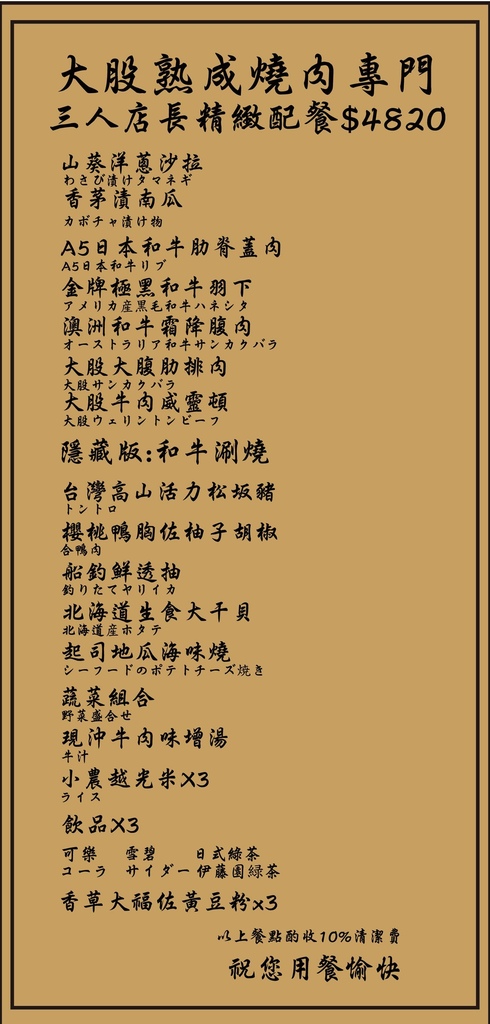 大股熟成燒肉專門
三人店長精緻配餐$4820
山葵洋蔥沙拉
わさび漬けタマネギ
香茅漬南瓜
カボチャ漬け物
A5日本和牛肋脊蓋肉
A5日本和牛リブ
金牌極黑和牛羽下
アメリカ産黒毛和牛ハネシタ
澳洲和牛霜降腹肉
オーストラリア和牛サンカクバラ
大股大腹肋排肉
大股サンカクバラ
大股牛肉威靈頓
大股ウェリントンビーフ
隱藏版:和牛涮燒
台灣高山活力松坂豬
トントロ
櫻桃鴨胸佐柚子胡椒
合鴨肉
船釣鮮透抽
釣りたてヤリイカ
北海道生食大干貝
北海道産ホタテ
起司地瓜海味燒
シーフードのポテトチーズ焼き
蔬菜組合
野菜盛合せ
現沖牛肉味增湯
牛汁
小農越光米X3
ライス
飲品X3
可樂 雪碧 日式綠茶
コーラ サイダー 伊藤園緑茶
香草大福佐黃豆粉x3
以上餐點酌收10%清潔費
祝您用餐愉快